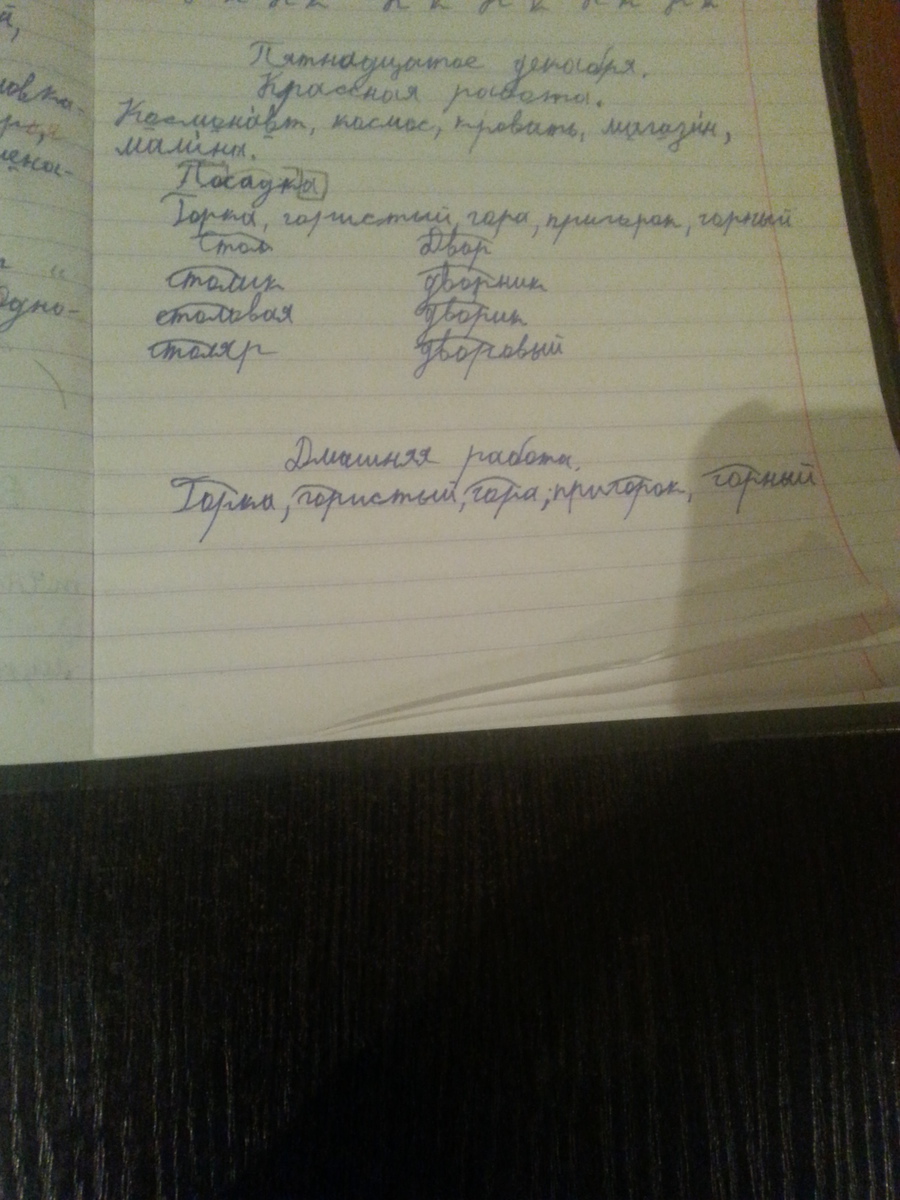 й,
Пятнадцатое декабря.
Крассная работа.
Космонавт, космос, кровать, магазин,
малины.
Посадка
Горка, гористый, гора, пригорок, горный
Стол Двор
столик дворник
столовая дворик
столяр дворовый
Дмашняя работа.
Горка, гористый, гора, пригорок, горный